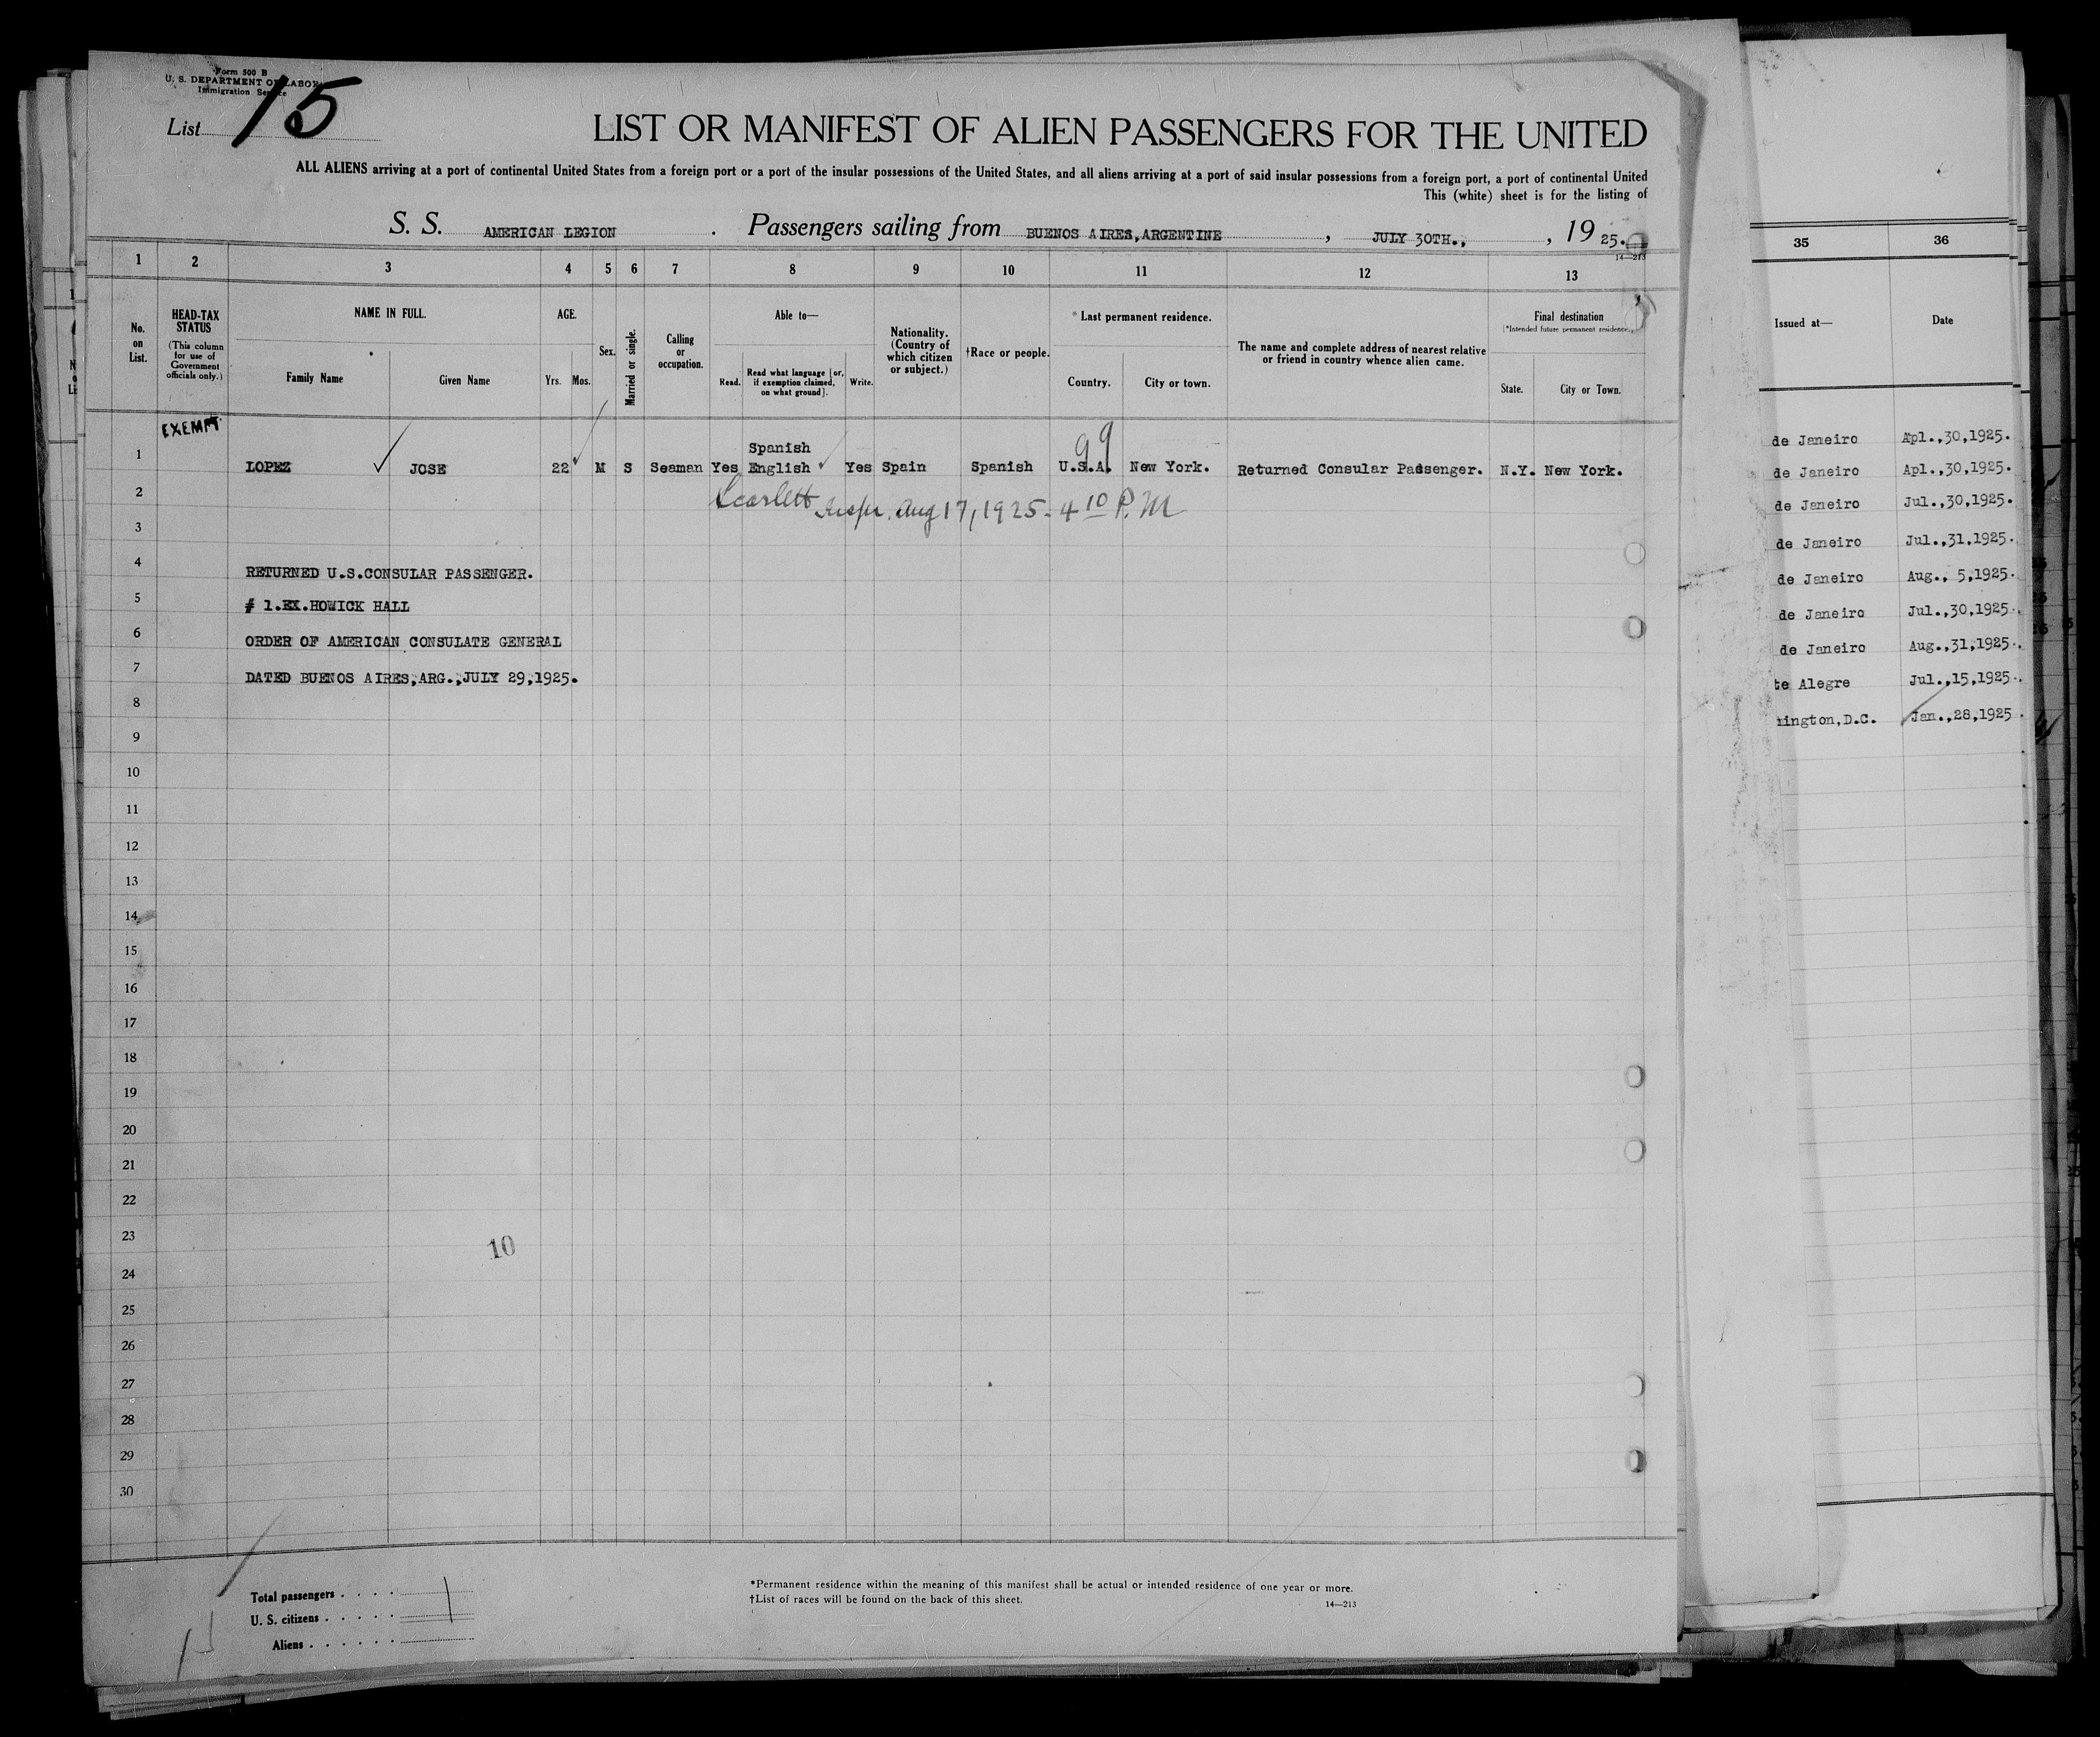 Form 500 B
U. S. DEPARTMENT OF LABOR
Immigration Service
List 15
LIST OR MANIFEST OF ALIEN PASSENGERS FOR THE UNITED
ALL ALIENS arriving at a port of continental United States from a foreign port or a port of the insular possessions of the United States, and all aliens arriving at a port of said insular possessions from a foreign port, a port of continental United
This (white) sheet is for the listing of
S. S. AMERICAN LEGION . Passengers sailing from BUENOS AIRES,ARGENTINE , JULY 30TH., , 19 25.
14—213
1 2 3 4 5 6 7 8 9 10 11 12 13
No. on List.
HEAD-TAX STATUS
(This column for use of Government officials only.)
NAME IN FULL.
Family Name
Given Name
AGE.
Yrs. Mos.
Sex.
Married or single.
Calling or occupation.
Able to—
Read.
Read what language [or, if exemption claimed, on what ground].
Write.
Nationality. (Country of which citizen or subject.)
†Race or people.
*Last permanent residence.
Country.
City or town.
The name and complete address of nearest relative or friend in country whence alien came.
Final destination
(*Intended future permanent residence.)
State.
City or Town.
EXEMPT
99
Spanish
1 LOPEZ JOSE 22 M S Seaman Yes English Yes Spain Spanish U.S.A. New York. Returned Consular Passenger. N.Y. New York.
2
Scarlett Inspr. Aug 17, 1925 - 4 10 P.M
3
4 RETURNED U.S.CONSULAR PASSENGER.
5 # 1.EX.HOWICK HALL
6 ORDER OF AMERICAN CONSULATE GENERAL
7 DATED BUENOS AIRES,ARG.,JULY 29,1925.
8
9
10
11
12
13
14
15
16
17
18
19
20
21
22
23
10
24
25
26
27
28
29
30
Total passengers
U. S. citizens
Aliens
*Permanent residence within the meaning of this manifest shall be actual or intended residence of one year or more.
†List of races will be found on the back of this sheet.
14—213
35 36
Issued at— Date
de Janeiro Apl.,30,1925.
de Janeiro Apl.,30,1925.
de Janeiro Jul.,30,1925.
de Janeiro Jul.,31,1925.
de Janeiro Aug., 5,1925.
de Janeiro Jul.,30,1925.
de Janeiro Aug.,31,1925.
te Alegre Jul.,15,1925.
ington,D.C. Jan.,28,1925.